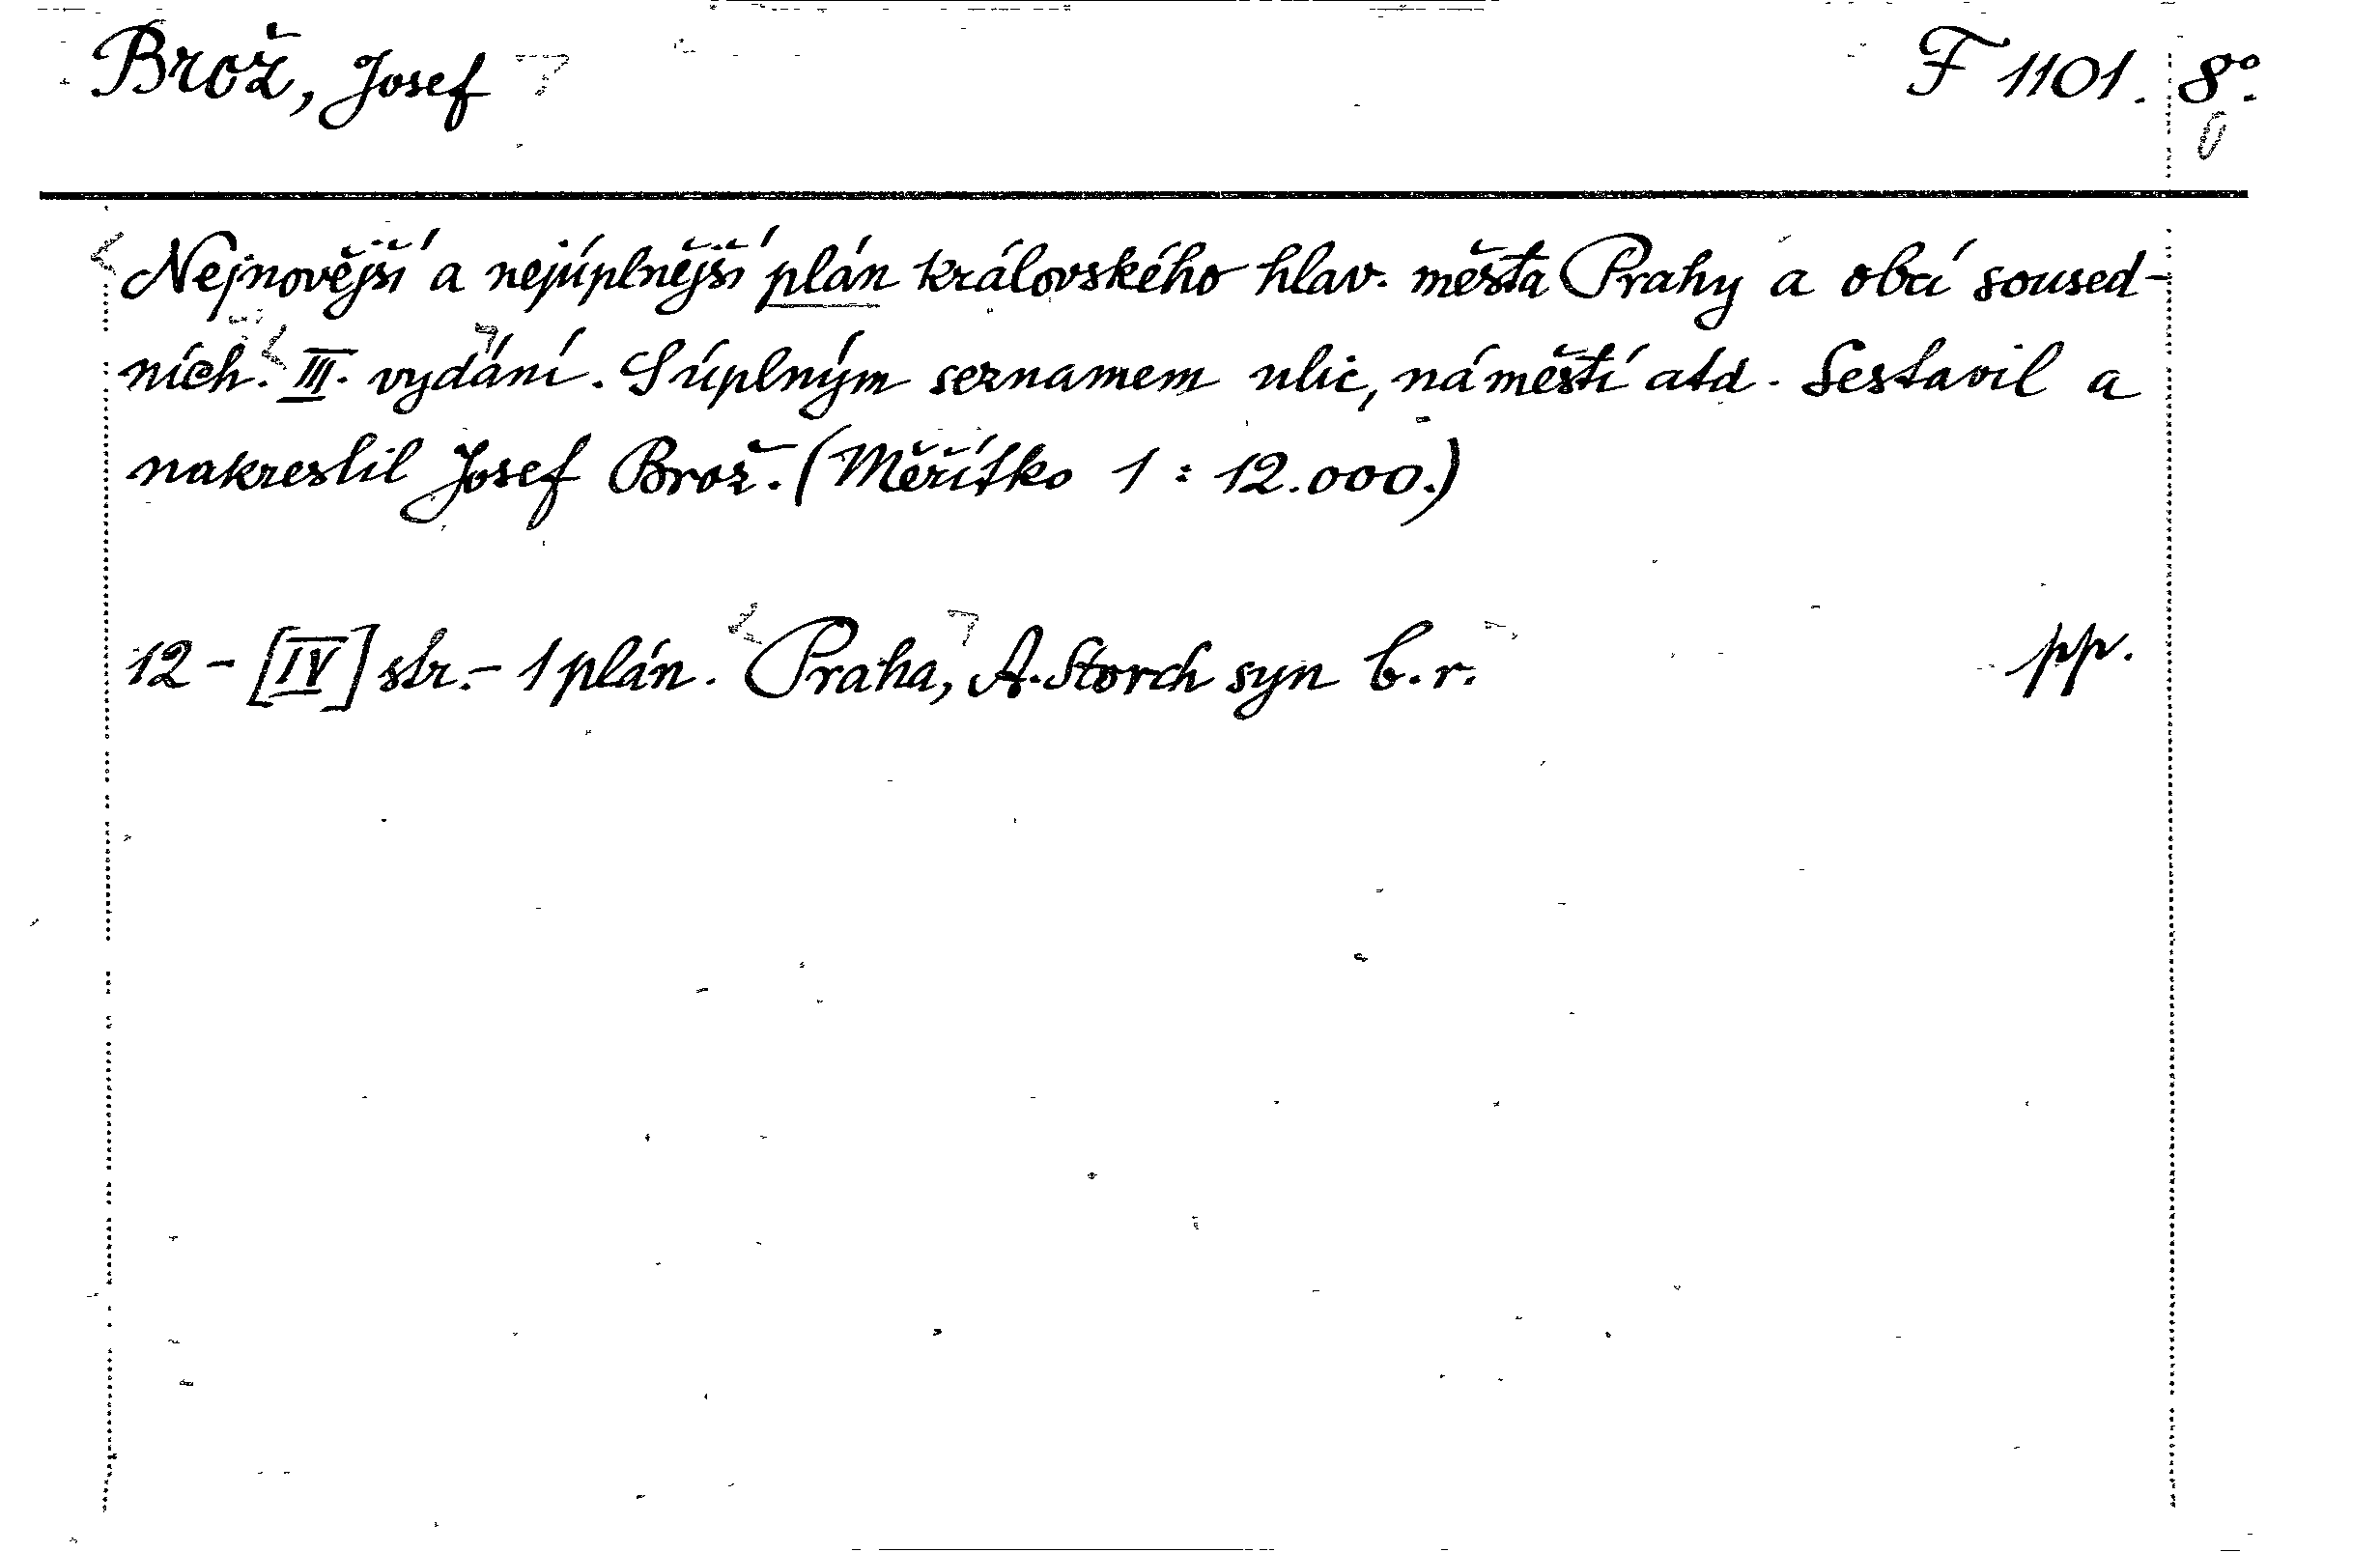 Brož, Josef F 1101. 8°.
Nejnovější a nejúplnější plán královského hlav. města Prahy a obcí soused-
ních. III. vydání. S úplným seznamem ulic, náměstí atd. Sestavil a
nakreslil Josef Brož. (Měřítko 1 : 12.000.)
12 - [IV] str. - 1 plán. Praha, A. Storch syn b. r. pp.